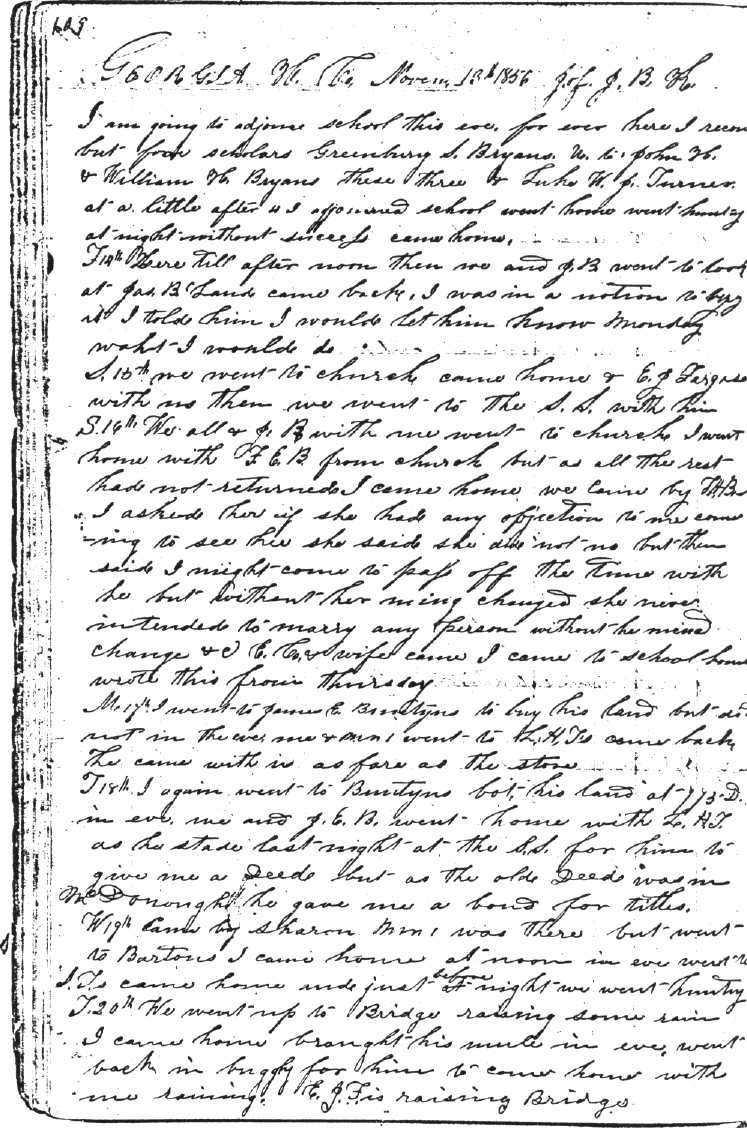 GEORGIA H. Co. Novem. 13th 1856 J. of J. B. H.
I am going to adjourn school this eve. for ever here I recon
but four scholars Greenbury S. Bryans. &c. to. John H.
& William H Bryans these three & Luke W. J. Turner.
at a little after 4 I ajourned school went home went hunting
at night without success came home.
F 14th Here till after noon then me and J. B went to look
at Jas. B's Land came back, I was in a notion to buy
it I tolde him I woulde let him know Monday
waht I woulde do
S. 15th we went to church came home & E. J Fargaso
with us then we went to the S. S. with him
S. 16th We all & J. B with me went to church I went
home with F. E. B from church but as all the rest
had not returned I came home we came by
I asked her if she had any objection to me come
-ing to see her she said she did not no but then
said I might come to pass off the time with
he but without her ming changed she never
intended to marry any person without he mind
change &c E. C. & wife came I came to school house
wrote this from thursday
M. 17th I went to James E. Buntyns to buy his land but did
not in the eve. me & M M I went to L. H. Ts came back
he came with us as fare as the store
T 18th. I again went to Buntyns bot. his land at 773 D.
in eve. me and J. E. B. went home with L. H. T.
as he stade last night at the S. S. for him to
give me a Deede but as the olde Deede was in
McDonough he gave me a bond for titles.
W 19th Came by Sharon M M I was there but went
to Bartons I came home at noon in eve went to
J. Ts came home and just before night we went hunting
T. 20th We went up to Bridge raising some rain
I came home braught his mule in eve, went
back in buggy for him to come home with
me raining. E. J. F. is raising Bridge